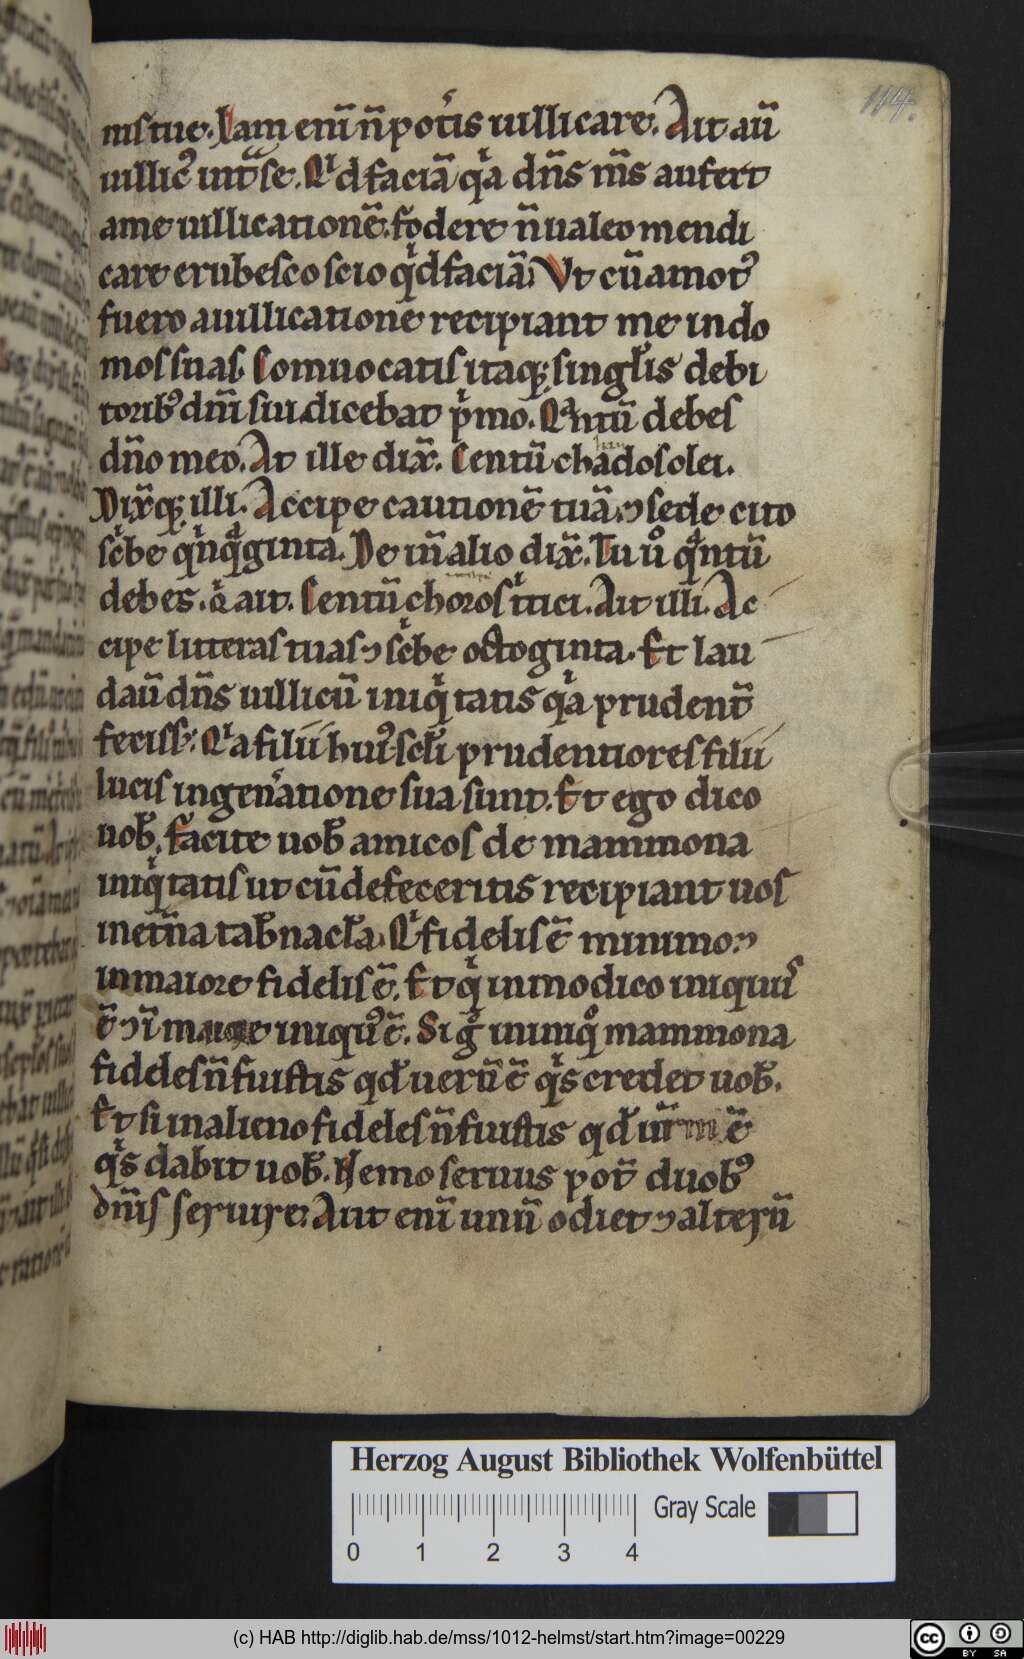 114.
nis tue. Iam eni̅ n̅ potis uillicare. Ait au̅
uillic᷒ int̅ se. Qⁱd facia̅ qⁱa dn̅s m̅s aufert
a me uillicatione̅. fodere n̅ ualeo mendi
care erubesco scio qⁱd facia̅. Vt cu̅ amot᷒
fuero auillicatione recipiant me in do
mos suas. Conuocatis itaq; singłis debi
torib᷒ dn̅i sui dicebat pⁱmo. Qᵃntu̅ debes
dn̅o meo. At ille dix̅. Centu̅ chados olei.
Dix̅q; illi. Accipe cautione̅ tua̅ ⁊ sede cito
scⁱbe qⁱnqᵃginta. Dein̅ alio dix̅. Tu uº qᵃntu̅
debes. qⁱ ait. Centu̅ choros tⁱtici. Ait illi. Ac
cipe litteras tuas ⁊ scⁱbe octoginta. Et lau
dau̅ dn̅s uillicu̅ iniqⁱtatis qⁱa prudent̅
feciss;. Qⁱa filii hui᷒ scłi prudentiores filii
lucis in gen̅atione sua sunt. Et ego dico
uob̅. facite uob̅ amicos de mammona
iniqⁱtatis ut cu̅ defeceritis recipiant uos
in et̅na tab̅nacła. Qⁱ fidelis e̅ minimo ⁊
in maiore fidelis e̅. Et qⁱ in modico iniquus
e̅ ⁊ i̅ maiore iniqu᷒ e̅. Si gº in iniqº mammona
fideles n̅ fuistis qd̅ ueru̅ e̅ qⁱs credet uob̅.
Et si in alieno fideles n̅ fuistis qd̅ ur̅m e̅
qⁱs dabit uob̅. Nemo seruus pot̅ duob᷒
dn̅is seruire. Aut eni̅ unu̅ odiet ⁊ alteru̅
Herzog August Bibliothek Wolfenbüttel
Gray Scale
0 1 2 3 4
(c) HAB http://diglib.hab.de/mss/1012-helmst/start.htm?image=00229
cc BY SA